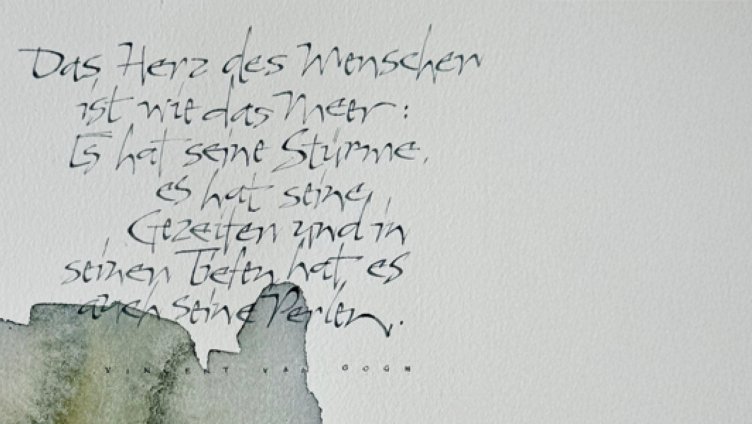 Das Herz des Menschen
ist wie das Meer:
Es hat seine Stürme,
es hat seine
Gezeiten und in
seinen Tiefen hat es
auch seine Perlen.
VINCENT VAN GOGH